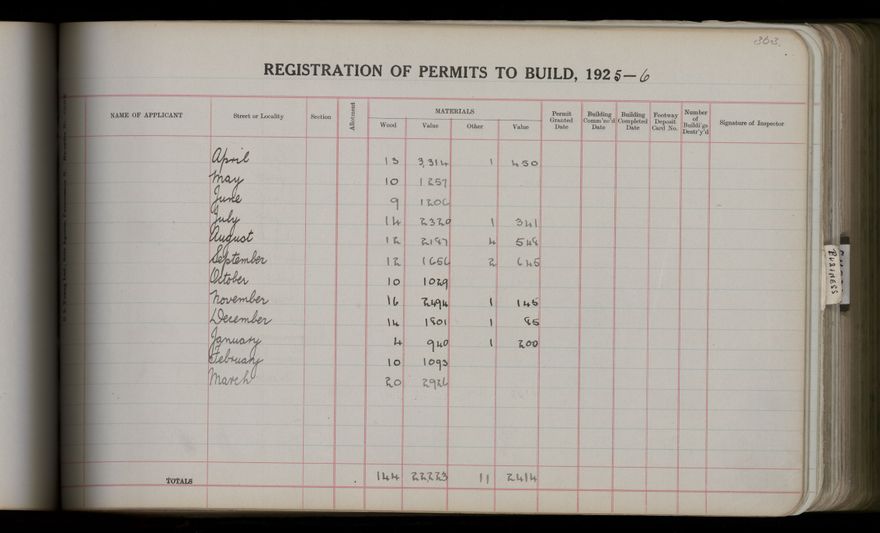 363.
REGISTRATION OF PERMITS TO BUILD, 1925-6
NAME OF APPLICANT Street or Locality Section Allotment MATERIALS Permit Granted Date Building Comm'nc'd Date Building Completed Date Footway Deposit Card No. Number of Buildi'gs Destr'y'd Signature of Inspector
Wood Value Other Value
April 13 3,314 1 450
May 10 1257
June 9 1206
July 14 2320 1 341
August 12 2187 4 548
September 12 1656 2 645
October 10 1029
November 16 2494 1 145
December 14 1801 1 85
January 4 940 1 200
February 10 1093
March 20 2926
TOTALS 144 22223 11 2414
BUSINESS